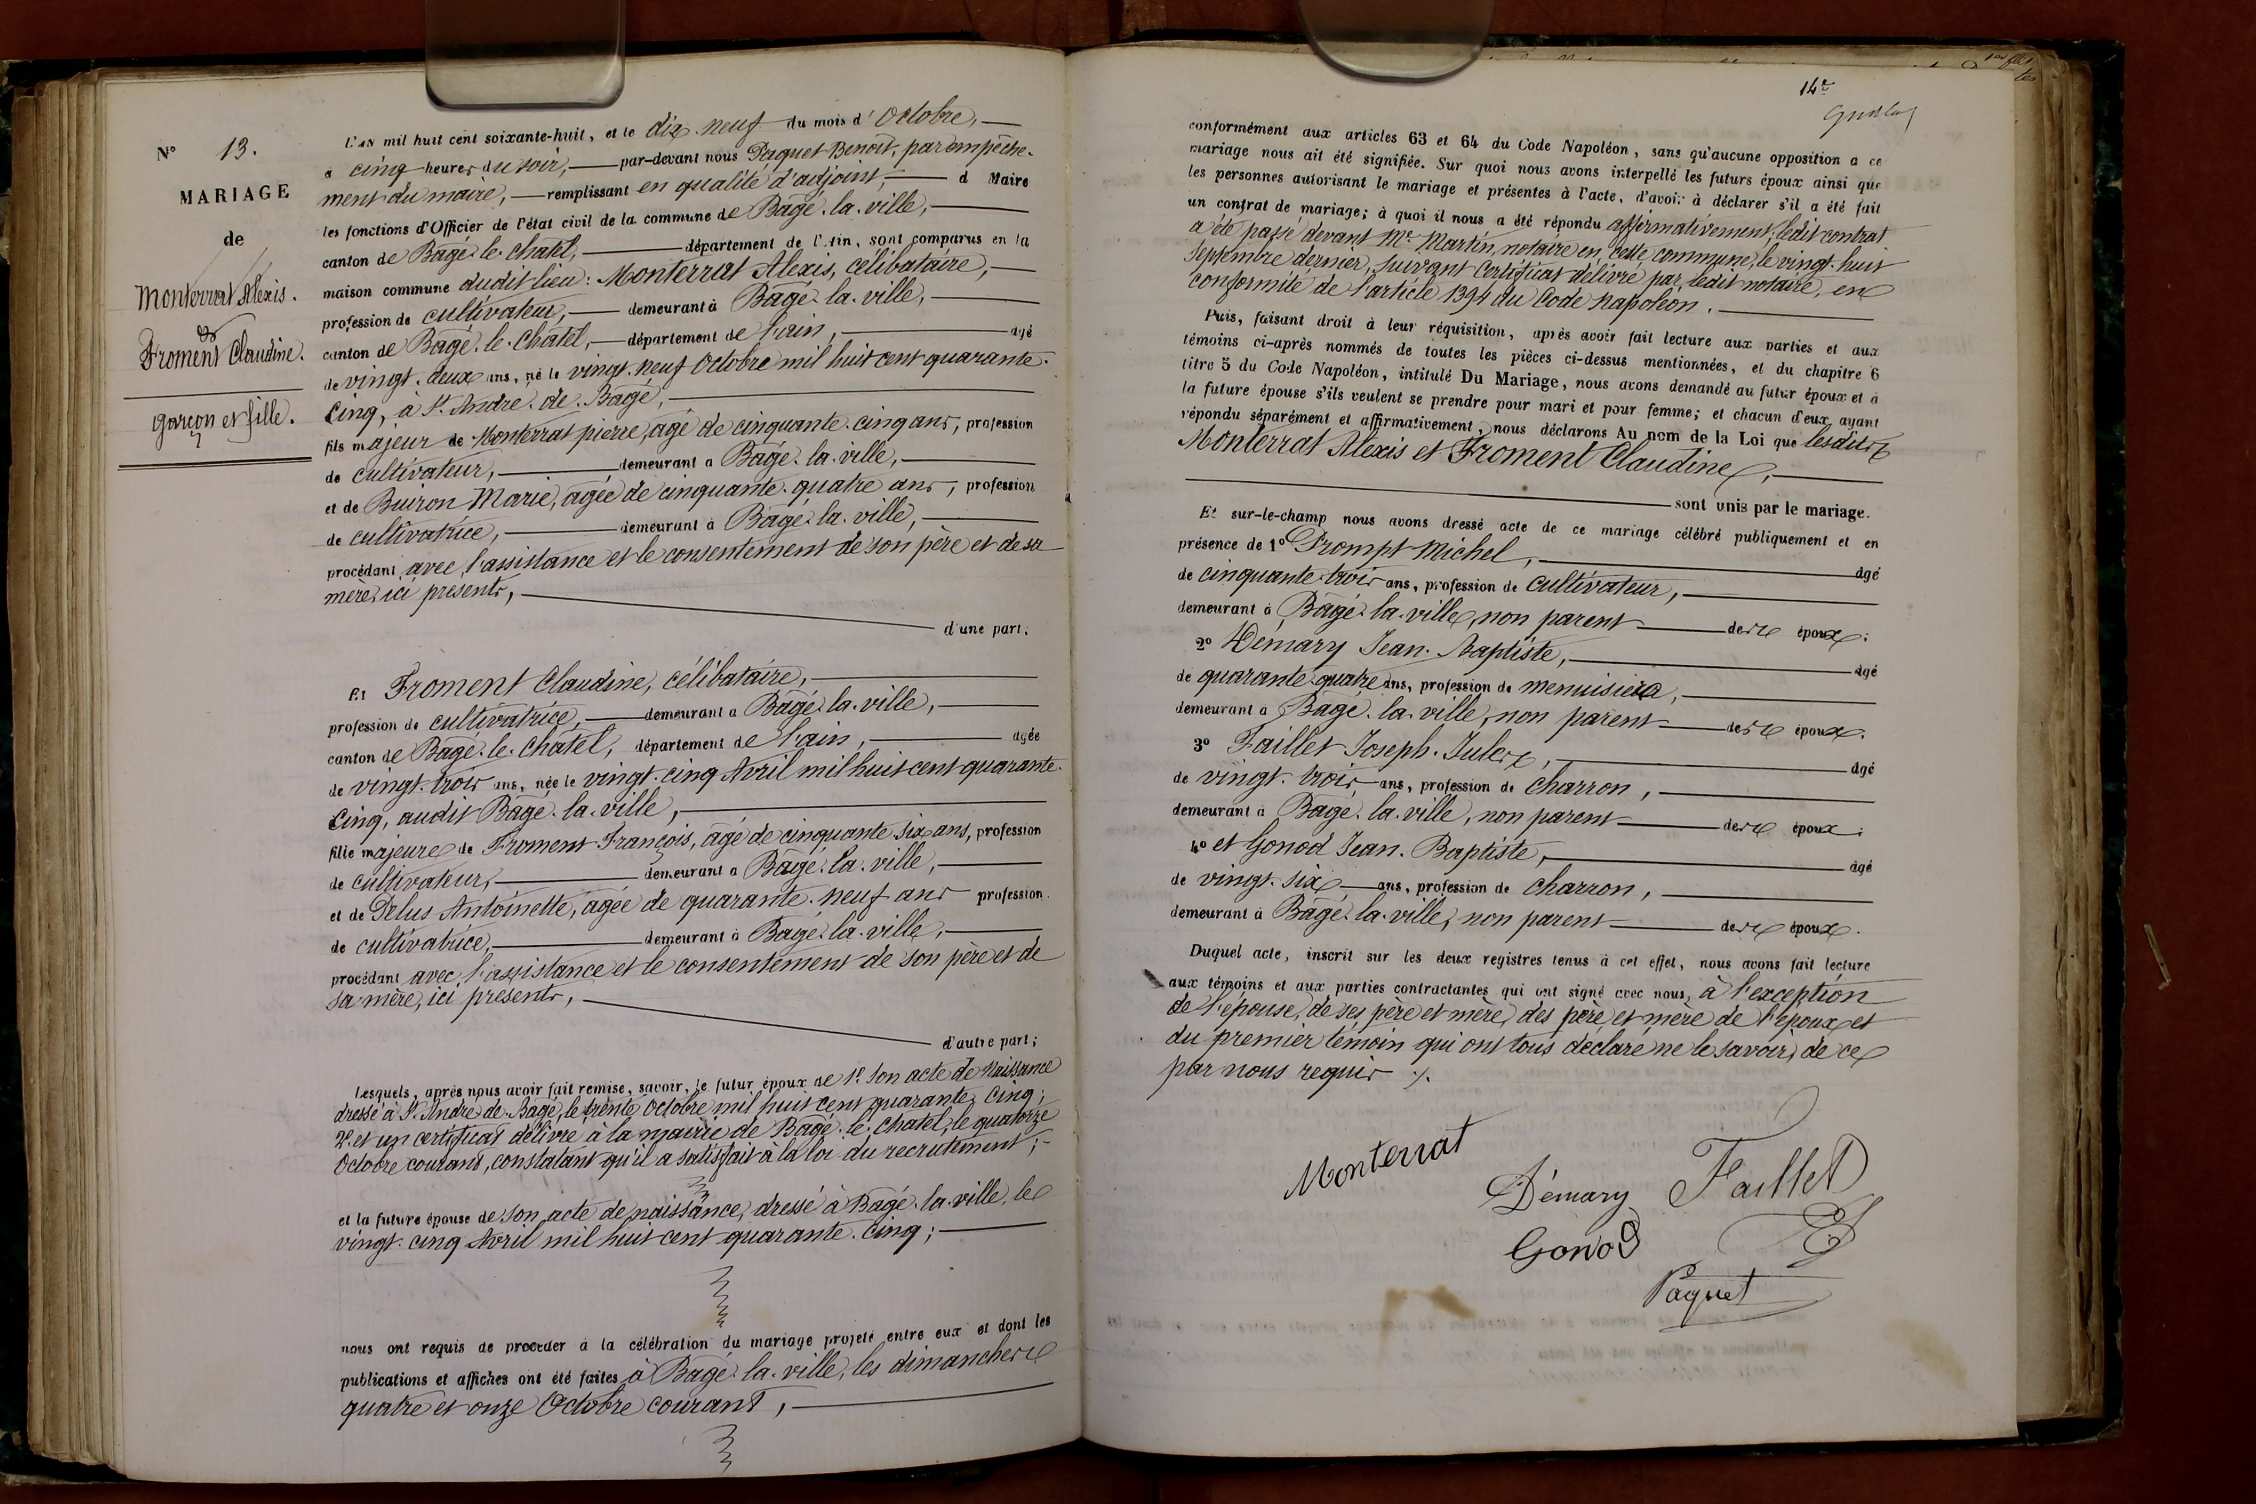 N° 13.
MARIAGE
de
Monterrat Alexis.
&
Froment Claudine.
garçon et fille.
L'an mil huit cent soixante-huit, et le dix-neuf du mois d'Octobre,
à cinq heures du soir, par-devant nous Paquet Benoit, par empêche-
ment du maire, remplissant en qualité d'adjoint, d Maire
les fonctions d'Officier de l'état civil de la commune de Bâgé-la-ville,
canton de Bâgé-le-Châtel, département de l'Ain, sont comparus en la
maison commune dudit lieu: Monterrat Alexis, célibataire,
profession de cultivateur, demeurant à Bâgé-la-ville,
canton de Bâgé-le-Châtel, département de l'ain, âgé
de vingt-deux ans, né le vingt-neuf Octobre mil huit cent quarante-
cinq, à St. André-de-Bâgé,
fils majeur de Monterrat pierre, âgé de cinquante-cinq ans, profession
de cultivateur, demeurant à Bâgé-la-ville,
et de Buiron Marie, âgée de cinquante-quatre ans, profession
de cultivatrice, demeurant à Bâgé-la-ville,
procédant avec l'assistance et le consentement de son père et de sa
mère, ici présents,
d'une part;
Et Froment Claudine, célibataire,
profession de cultivatrice, demeurant à Bâgé-la-ville,
canton de Bâgé-le-Châtel, département de l'ain, âgée
de vingt-trois ans, née le vingt-cinq Avril mil huit cent quarante-
cinq, audit Bâgé-la-ville,
fille majeure de Froment François, âgé de cinquante-six ans, profession
de cultivateur, demeurant à Bâgé-la-ville,
et de Delus Antoinette, âgée de quarante-neuf ans profession
de cultivatrice, demeurant à Bâgé-la-ville,
procédant avec l'assistance et le consentement de son père et de
sa mère, ici présents,
d'autre part;
Lesquels, après nous avoir fait remise, savoir, le futur époux de 1° Son acte de Naissance
dressé à St. André-de-Bâgé, le trente Octobre mil huit cent quarante-cinq;
2° et un certificat délivré à la mairie de Bâgé-le-Châtel, le quatorze
Octobre courant, constatant qu'il a satisfait à la loi du recrutement;
et la future épouse de Son acte de naissance, dressé à Bâgé-la-ville, le
vingt-cinq Avril mil huit cent quarante-cinq;
nous ont requis de procéder à la célébration du mariage projeté entre eux et dont les
publications et affiches ont été faites à Bâgé-la-ville, les dimanches
quatre et onze Octobre courant,
14e
conformément aux articles 63 et 64 du Code Napoléon, sans qu'aucune opposition a ce
mariage nous ait été signifiée. Sur quoi nous avons interpellé les futurs époux ainsi que
les personnes autorisant le mariage et présentes à l'acte, d'avoir à déclarer s'il a été fait
un contrat de mariage; à quoi il nous a été répondu affirmativement, ledit contrat
a été passé devant Me. Martin, notaire en cette commune, le vingt-huit
Septembre dernier, suivant certificat délivré par ledit notaire, en
conformité de l'article 1394 du Code napoléon.
Puis, faisant droit à leur réquisition, après avoir fait lecture aux parties et aux
témoins ci-après nommés de toutes les pièces ci-dessus mentionnées, et du chapitre 6
titre 5 du Code Napoléon, intitulé Du Mariage, nous avons demandé au futur époux et à
la future épouse s'ils veulent se prendre pour mari et pour femme; et chacun d'eux ayant
répondu séparément et affirmativement, nous déclarons Au nom de la Loi que lesdits
Monterrat Alexis et Froment Claudine,
sont unis par le mariage.
Et sur-le-champ nous avons dressé acte de ce mariage célébré publiquement et en
présence de 1° Prompt Michel, âgé
de cinquante-trois ans, profession de cultivateur,
demeurant à Bâgé-la-ville, non parent des époux;
2° Démary Jean-Baptiste, âgé
de quarante-quatre ans, profession de menuisier,
demeurant à Bâgé-la-ville, non parent des époux;
3° Faillet Joseph-Jules, âgé
de vingt-trois ans, profession de charron,
demeurant à Bâgé-la-ville, non parent des époux;
4° et Gonod Jean-Baptiste, âgé
de vingt-six ans, profession de charron,
demeurant à Bâgé-la-ville, non parent des époux.
Duquel acte, inscrit sur les deux registres tenus à cet effet, nous avons fait lecture
aux témoins et aux parties contractantes qui ont signé avec nous, à l'exception
de l'épouse, de ses père et mère, des père et mère de l'époux et
du premier témoin qui ont tous déclaré ne le savoir, de ce
par nous requis ./.
Monterrat
Démary Faillet
Gonod
Paquet